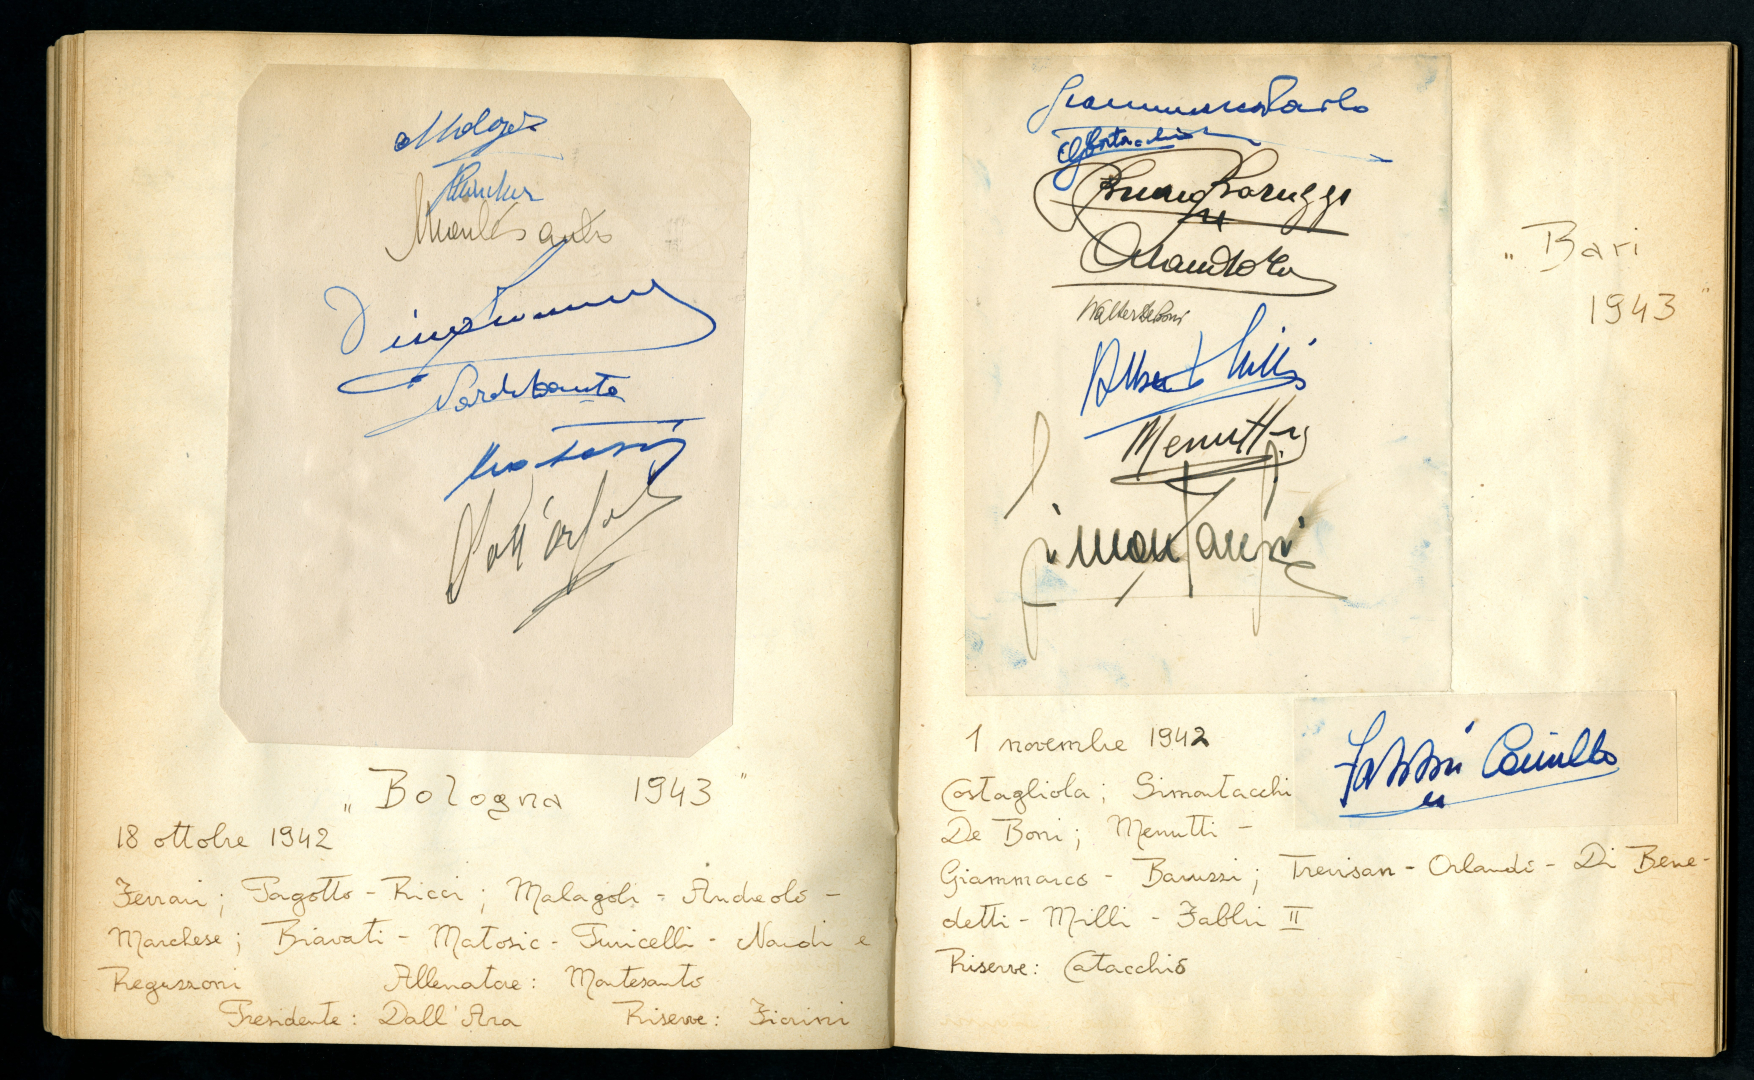 Montesanto
Nardi Dante
Matosic
Dall'Ara
„Bologna 1943"
18 ottobre 1942
Ferrari; Pagotto - Ricci; Malagoli - Andreolo -
Marchese; Biavati - Matosic - Puricelli - Nardi e
Reguzzoni Allenatore: Montesanto
Presidente: Dall'Ara Riserve: Fiorini
Giammarco Paolo
Bruno Baruzzi
Walter De Boni
Albert Milli
Menutti
Simontacchi
„Bari
1943"
Fabbri Camillo
1 novembre 1942
Costagliola; Simontacchi
De Boni; Menutti -
Giammarco - Baruzzi; Trevisan - Orlando - Di Bene-
detti - Milli - Fabbri II
Riserve: Catacchio